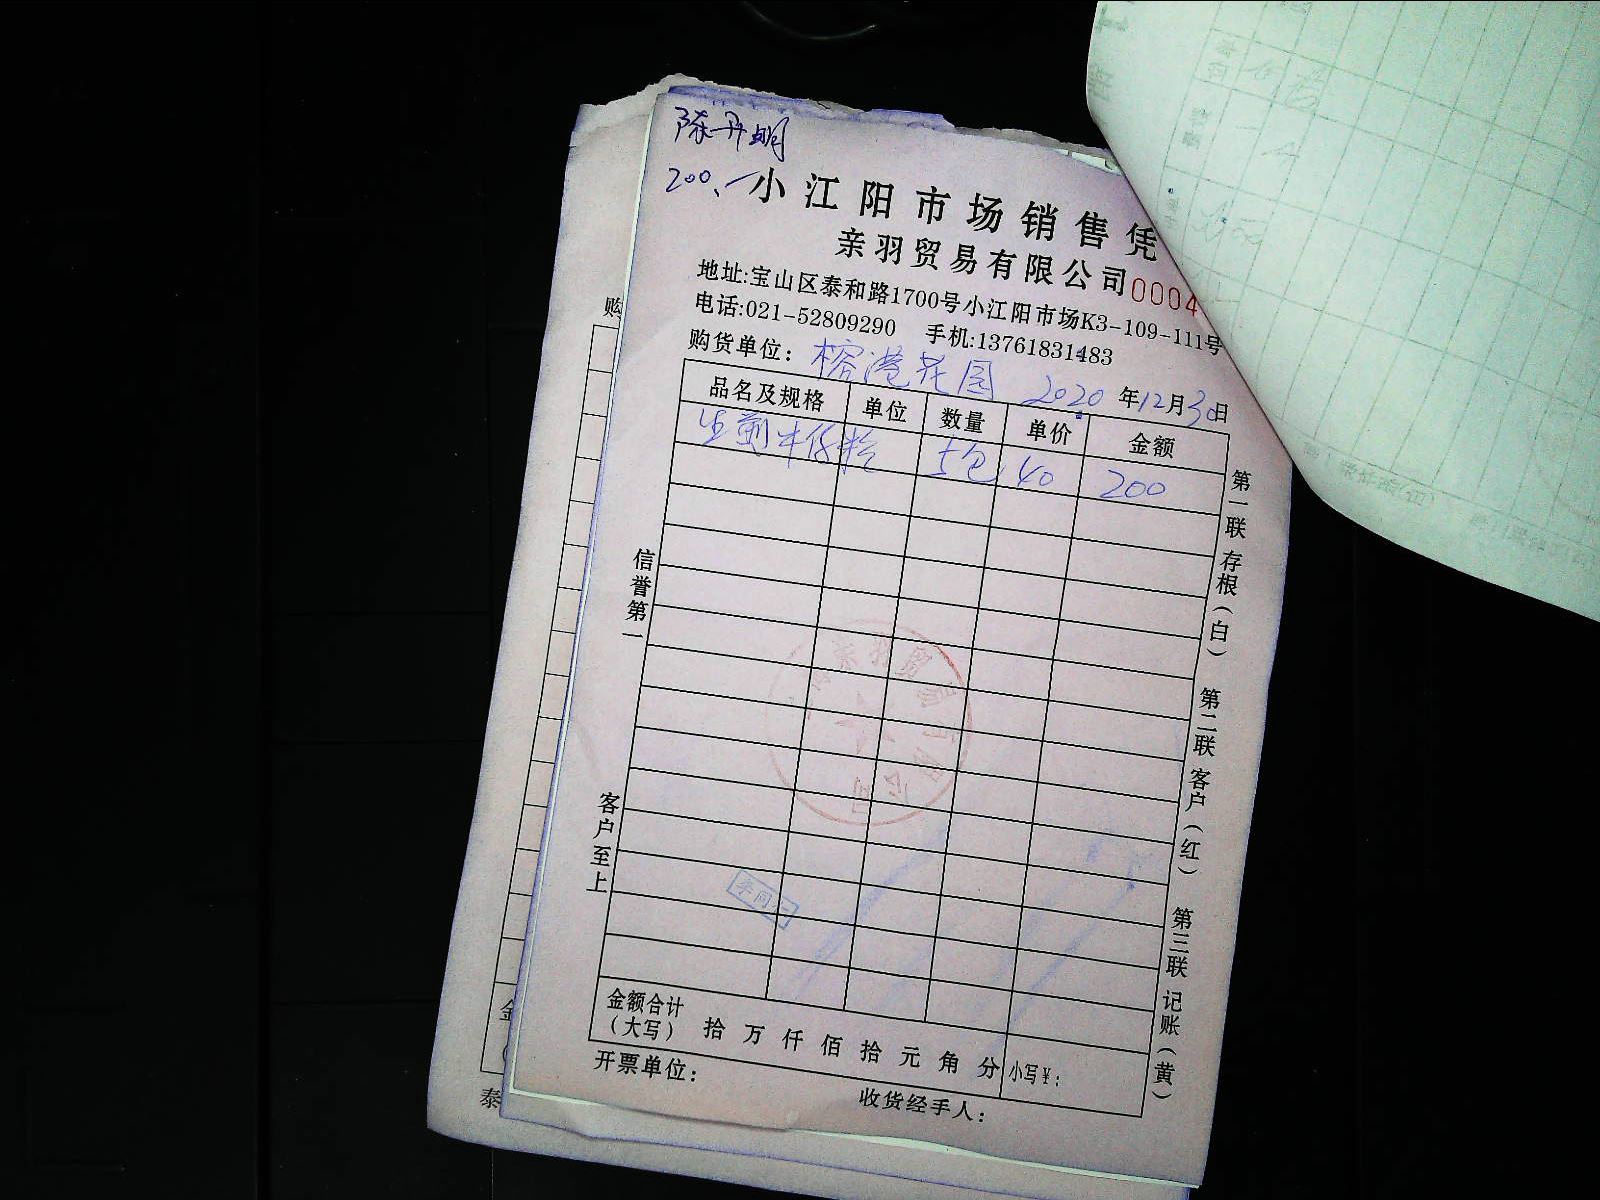 陈开明
200.一
小江阳市场销售凭
亲羽贸易有限公司 0004
地址:宝山区泰和路1700号小江阳市场K3-109-111号
电话:021-52809290 手机:13761831483
购货单位: 榕港花园 2020 年 12 月 30 日
品名及规格 单位 数量 单价 金额
牛仔粒 5包 40 200
信誉第一
客户至上
第一联 存根(白) 第二联 客户(红) 第三联 记账(黄)
金额合计
(大写) 拾 万 仟 佰 拾 元 角 分 小写¥:
开票单位: 收货经手人:
购
金
泰